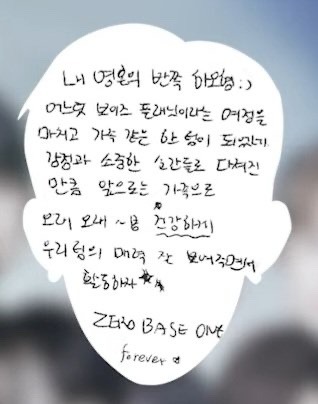 내 영혼의 반쪽 하오형 :)
어느덧 보이즈 플래닛이라는 여정을
마치고 가족 같은 한 팀이 되었네
감정과 소중한 순간들로 다져진
만큼 앞으로는 가족으로
오래 오래 ~ 건강하게
우리 팀의 매력 잘 보여주면서
활동하자 ★★
ZERO BASE ONE
forever